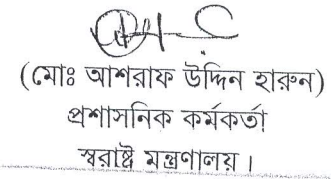 (মোঃ আশরাফ উদ্দিন হারুন)
প্রশাসনিক কর্মকর্তা
স্বরাষ্ট্র মন্ত্রণালয়।